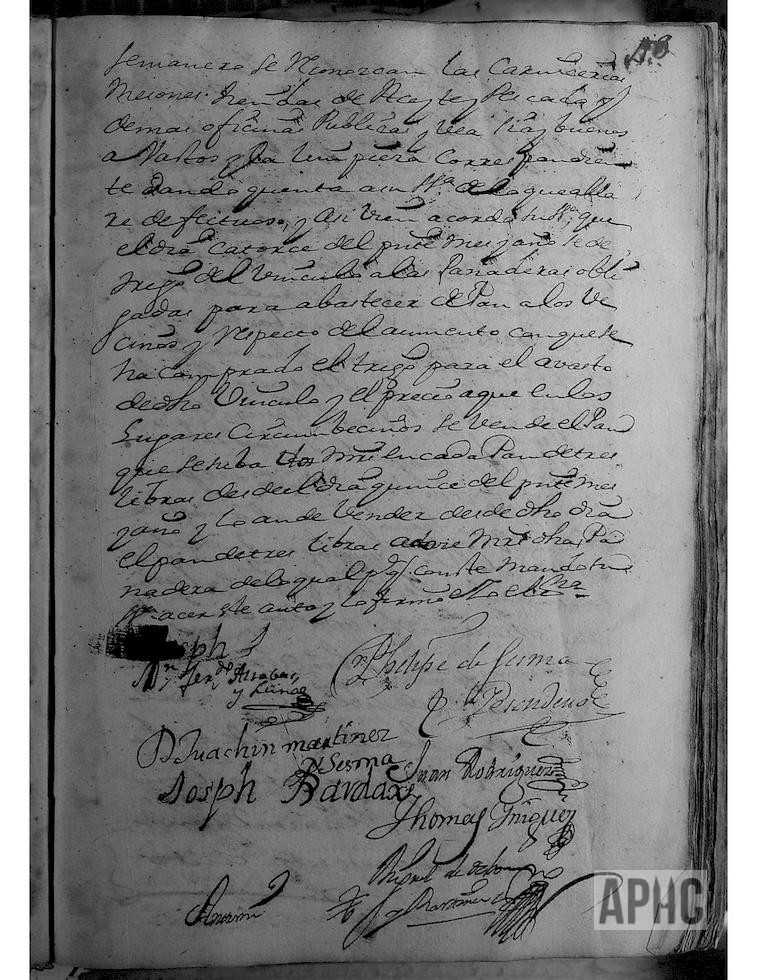 48
semanero se Reconozcan las Carnizerias
Mesones tiendas de Aceyte y Pescado y
demas oficinas Publicas y vea si ay buenos
a Vastos y la limpieza Correspondien
te dando quenta a su Sª de lo que alla
re defectuoso, y Asi vien acordo su Sª que
el dia Catorce del pnte mes y año se de
trigo del Vinculo a las Panaderas obli
gadas para abastecer de Pan a los Ve
cinos y Respecto del aumento con que se
ha comprado el trigo para el avasto
de dho Vinculo y el precio a que en los
Lugares Circumbecinos se vende el Pan
que se suba dos Mrs en cada Pan de tres
libras desde el dia quince del pnte mes
y año y lo ande Vender desde dho dia
el pan de tres libras a doze Mrs dhas Pa
naderas de lo qual pª q conste Mando su
Sª acer este auto y lo firmo
Joseph
Dn Ferndo Arrabas
y Luna
Phelipe de Sesma
D Juachin martinez
y Sesma
Juan Rodriguez
Joseph
Thomas Iñiguez
Miguel de
Ante mi
APHC